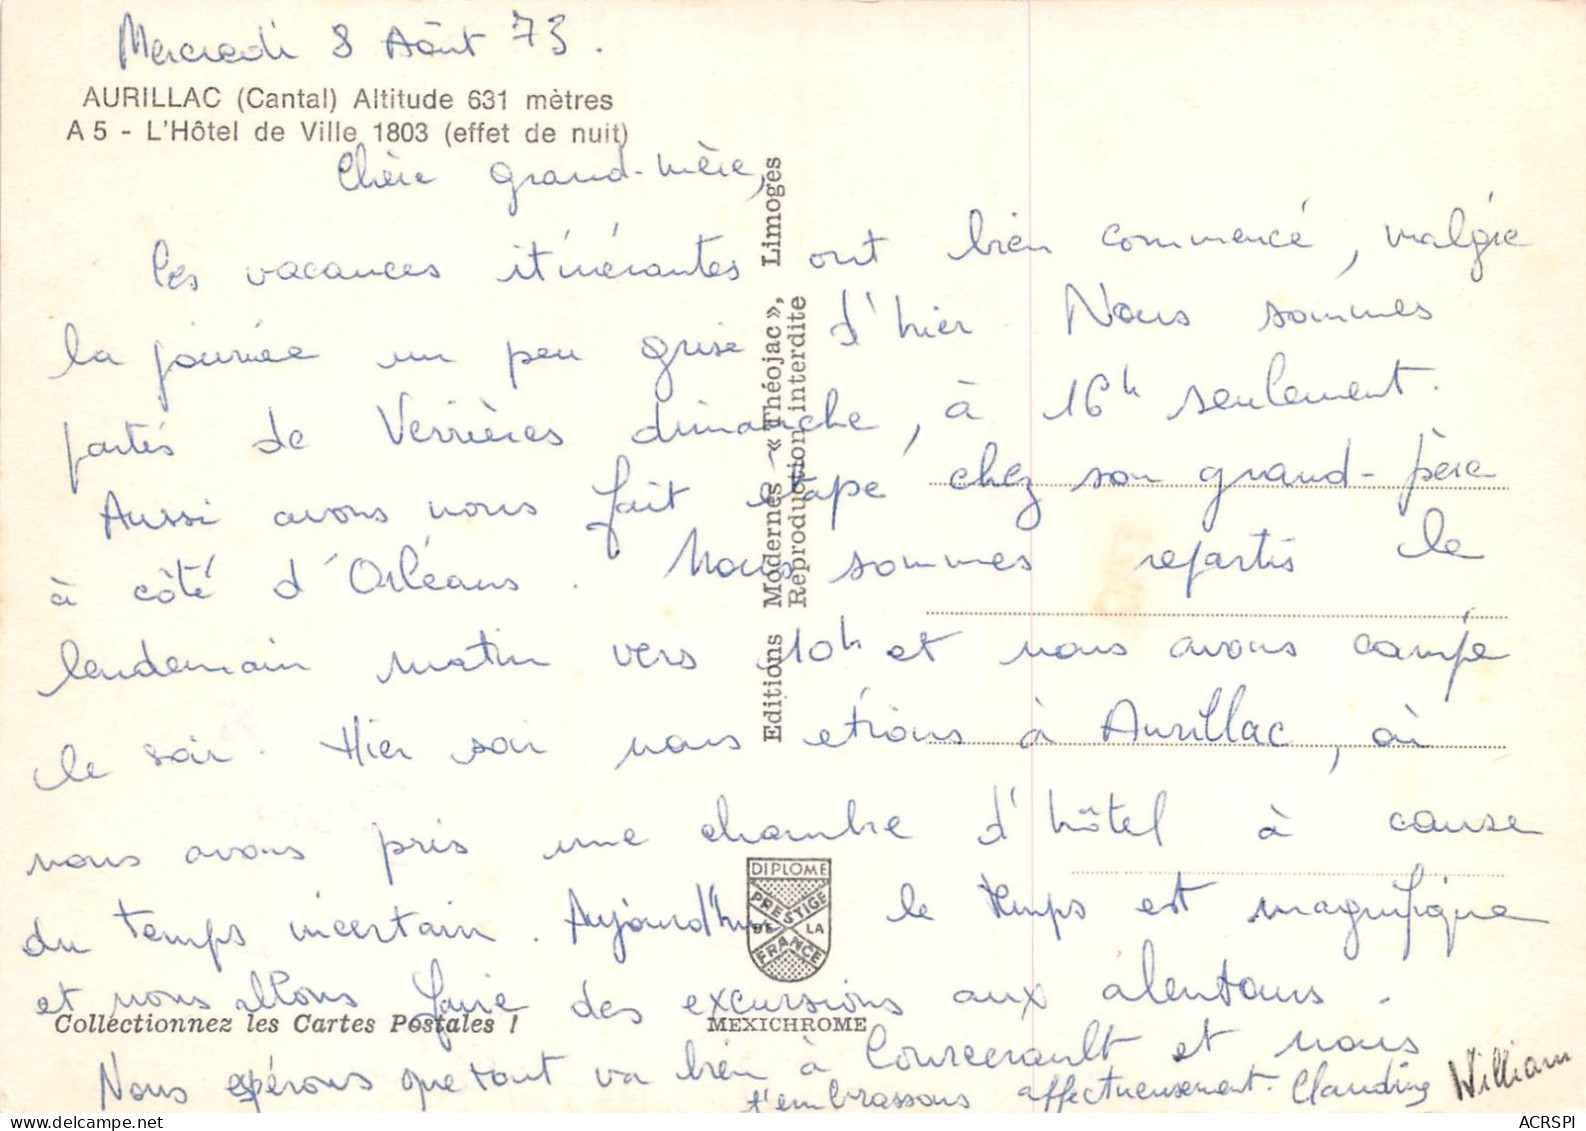 Mercredi 8 Août 73.
AURILLAC (Cantal) Altitude 631 mètres
A 5 - L'Hôtel de Ville 1803 (effet de nuit)
Chère grand-mère,
les vacances itinérantes ont bien commencé, malgré
la journée un peu grise d'hier. Nous sommes
partis de Verrières dimanche, à 16h seulement.
Aussi avons nous fait étape chez son grand-père
à côté d'Orléans. Nous sommes repartis le
lendemain matin vers 10h et nous avons campé
le soir. Hier soir nous étions à Aurillac, où
nous avons pris une chambre d'hôtel à cause
du temps incertain. Aujourd'hui le temps est magnifique
et nous allons faire des excursions aux alentours.
Nous espérons que tout va bien à Courcerault et nous
t'embrassons affectueusement. Claudine William
Editions Modernes « Théojac », Limoges
Reproduction interdite
DIPLOME
PRESTIGE
DE LA
FRANCE
Collectionnez les Cartes Postales !
MEXICHROME
ACRSPI